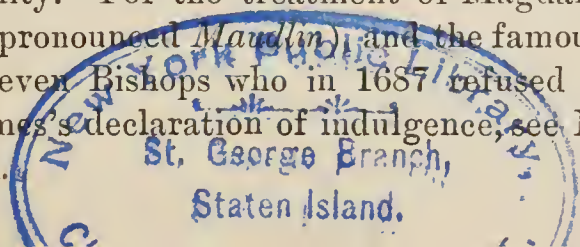 pronounced Maudlin), and the famou
even Bishops who in 1687 refused
mes's declaration of indulgence, see
New York Public Library,
St. George Branch,
Staten Island.